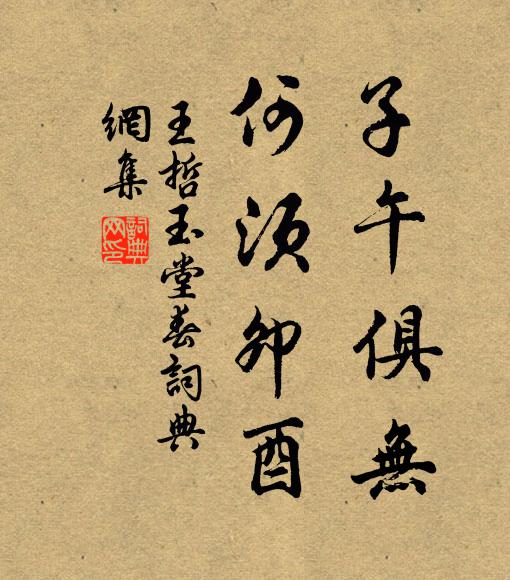 子午俱無
何須卯酉
王哲玉堂春詞典
網集
詞典
网印